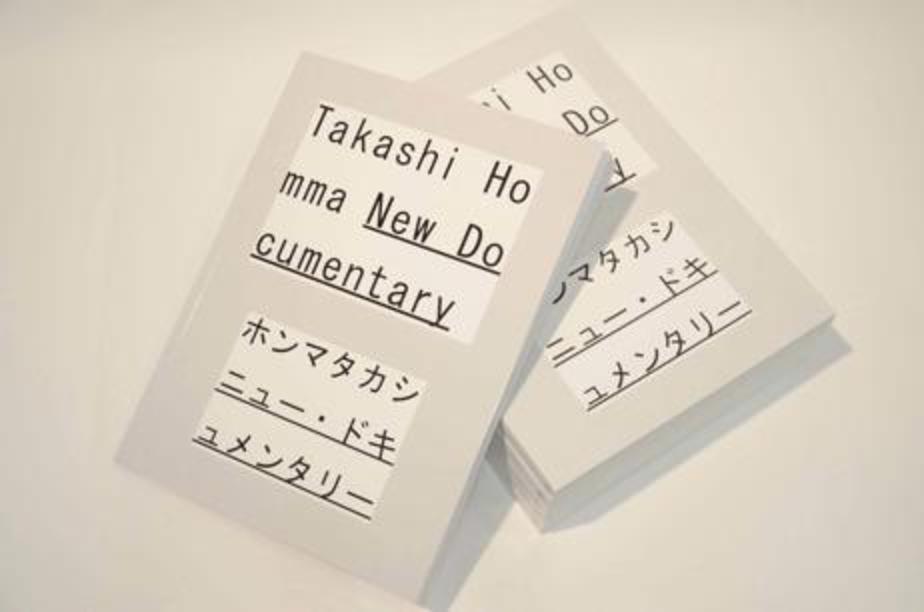 Takashi Ho
mma New Do
cumentary
ホンマタカシ
ニュー・ドキ
ュメンタリー
Ho
Do
ンマタカシ
ニュー・ドキ
ュメンタリー